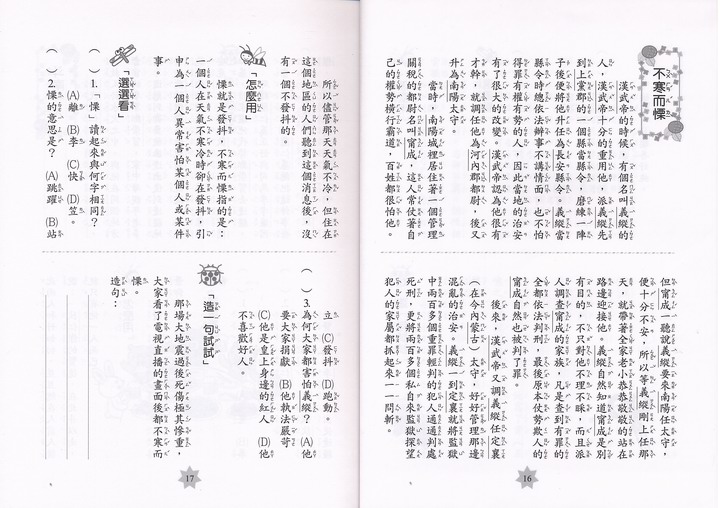 不寒而慄
漢武帝的時候，有個名叫義縱的
人，漢武帝十分的重用他，派義縱先
到上黨郡的一個縣當縣令，磨練一陣
子後便將他升任為長安縣令。義縱當
縣令時總依法辦事不講情面，也不怕
得罪有權有勢的人，因此當地的治安
有了很大的改變。漢武帝認為他很有
才幹，就調任他為河內郡都尉，後又
升為南陽太守。
當時，南陽城裡居住著一個管理
關稅的都尉名叫甯成，這人常仗著自
己的權勢橫行霸道，百姓都很怕他。
但甯成一聽說義縱要來南陽任太守，
便十分不安，所以等義縱剛上任那
天，就帶著全家老小恭恭敬敬的站在
路邊迎接他。義縱自然知道甯成是別
有目的，不只對他不理不睬，而且派
人調查甯成的家族，凡是查到有罪的
全都依法判刑，最後原本仗勢欺人的
甯成自然也被判了罪。
後來，漢武帝又調義縱任定襄
（在今內蒙古）太守，好好管理那邊
混亂的治安。義縱一到定襄就將監獄
中兩百多個重罪輕判的犯人通通判處
死刑，更將兩百多個私自來監獄探望
犯人的家屬都抓起來一一問斬。
16
所以，儘管那天天氣不冷，但住在
這個地區的人們聽到這個消息後，沒
有一個不發抖的。
「怎麼用」
慄就是發抖，不寒而慄指的是：
一個人在天氣不寒冷時卻在發抖，引
申為一個人異常害怕某個人或某件
事。
「選選看」
（ ）1.「慄」讀起來與何字相同？
(A)離 (B)李 (C)快 (D)笠。
（ ）2.慄的意思是？ (A)跳躍 (B)站
立 (C)發抖 (D)跑動。
（ ）3.為何大家都害怕義縱？ (A)他
要大家捐獻 (B)他執法嚴苛
(C)他是皇上身邊的紅人 (D)他
不喜歡好人。
「造一句試試」
那場大地震過後死傷極其慘重，
大家看了電視直播的畫面後都不寒而
慄。
造句：
17